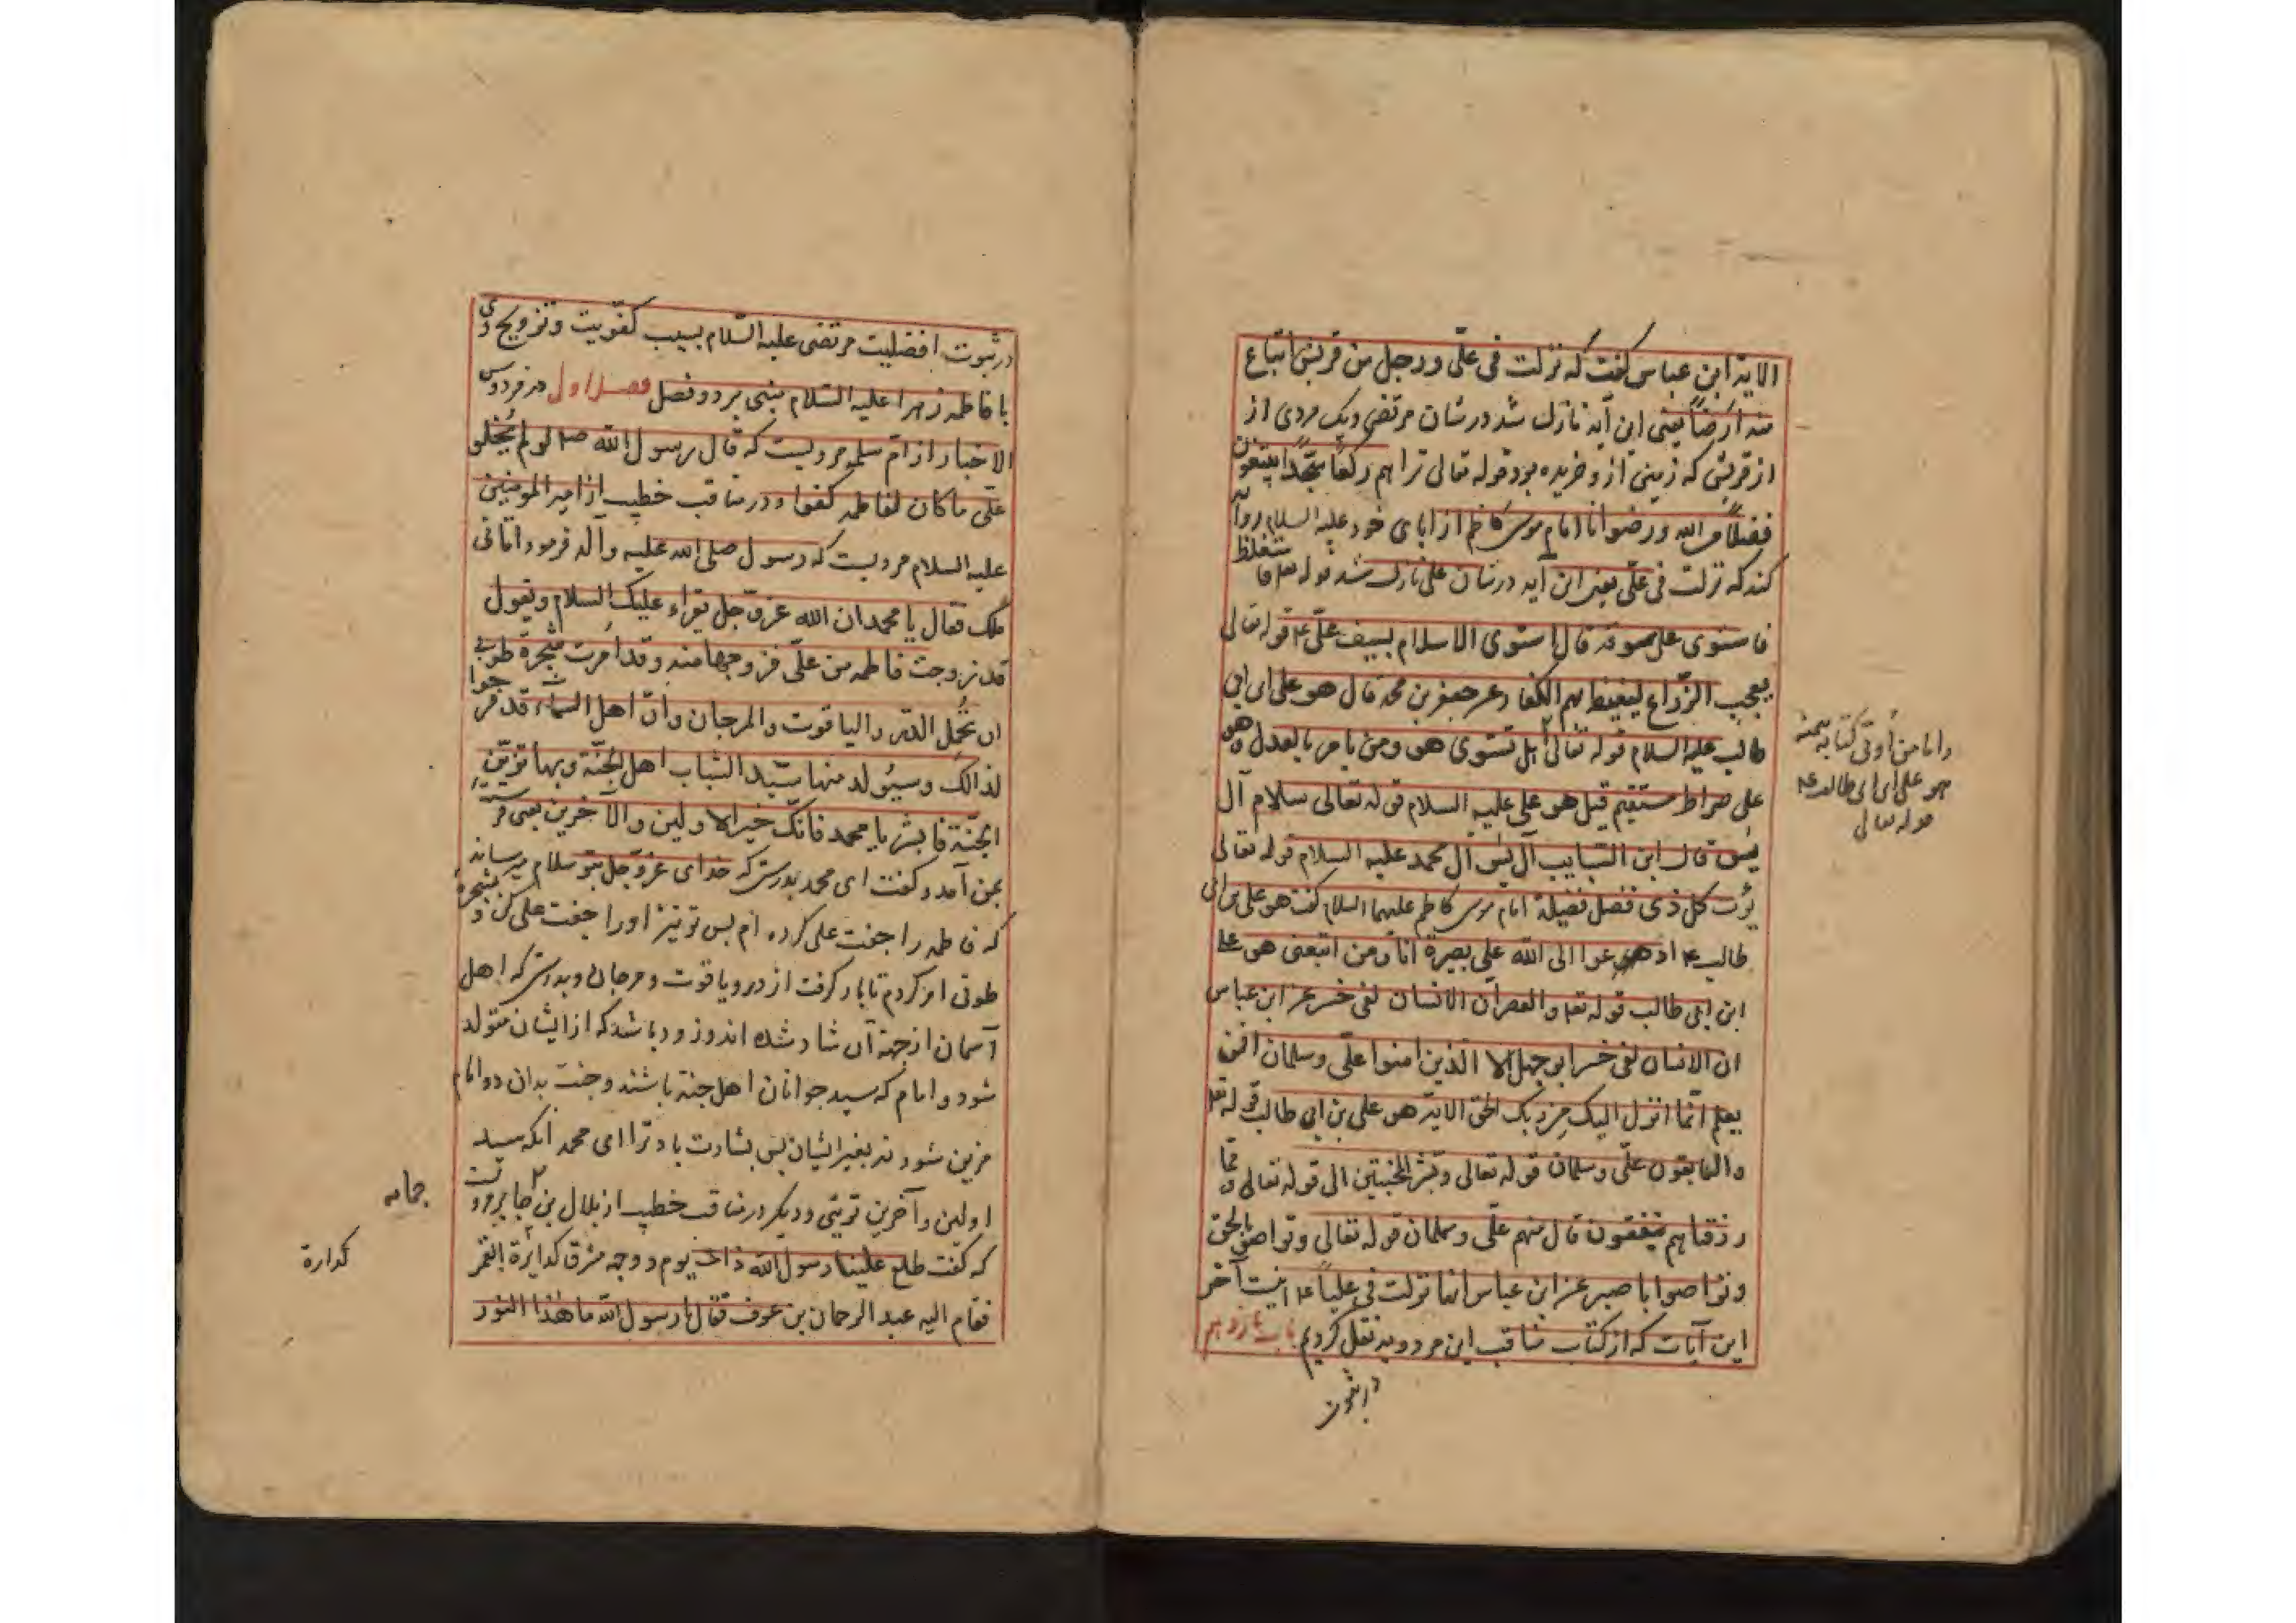 الایة ابن عباس کفت که نزلت فی علّی و رجل من قریش ابتاع
منه ارضاً یعنی این آیه نازل شد در شان مرتضی و یک مردی از
از قریش که زمینی از و خریده بود قوله تعالی تراهم رکعاً سجّداً یبتغون
فضلاً من الله و رضوانا امام موسی کاظم از ابای خود علیه السلام روآیة
کند که نزلت فی علّی یعنی این آیه در شان علی نازل شد قوله تعم فاستغلظ
فاستوی علی سوقه قال استوی الاسلام بسیف علّی ع قوله تعالی
یعجب الزّراع لیغیظ بهم الکفار عن جعفر بن محمد قال هو علی ابن ابی
طالب علیه السلام قوله تعالی هل تستوی هو ومن یامر بالعدل وهو
علی صراط مستقیم قیل هو علی علیه السلام قوله تعالی سلام آل
یس قال ابن السایب آل یس آل محمد علیه السلام قوله تعالی
یؤت کل ذی فضل فضیلة امام موسی کاظم علیهما السلام کفت هو علی بن ابی
طالب ع ادعوا الی الله علی بصیرة انا ومن اتبعنی هو علی
ابن ابی طالب قوله تعم والعصر ان الانسان لفی خسر عن ابن عباس
ان الانسان لفی خسر ابو جهل الا الذین امنوا علّی وسلمان افمن
یعلم انّما انزل الیک من ربک الحق الایة هو علی بن ابی طالب قوله تعم
والسابقون علّی وسلمان قوله تعالی وبشّر المخبتین الی قوله تعالی وممّا
رزقناهم ینفقون قال منهم علّی وسلمان قوله تعالی وتواصوا بالحق
وتواصوا باصبر عن ابن عباس انها نزلت فی علیاً ع اینست آخر
این آیات که از کتاب مناقب ابن مردویه نقل کردیم باب یازدهم
در ثبوت
واما من أوتی کتابه بیمینه
هو علی ابن ابی طالب ع
قوله تعالی
در ثبوت افضلیت مرتضی علیه السّلام بسبب کفویت و تزویج وی
با فاطمه زهرا علیه السّلام مبنی بر دو فصل فصل اول در فردوس
الاخبار از امّ سلمه مرویست که قال رسول الله صم لو لم یُخلق
علّی ما کان لفاطمه کفوا و در مناقب خطیب از امیر المومنین
علیه السلام مرویست که رسول صلی الله علیه وآله فرمود اتانی
ملک فقال یا محمد ان الله عزّ وجل یقراء علیک السلام ویقول
قد زوجت فاطمه من علّی فزوجها منه وقد اَمرت شجرة طوبی
ان تحمل الدّر والیاقوت والمرجان وانّ اهل السماء قد فرحوا
لذالک وسیُولد منها سیّد الشباب اهل الجنّة وبها تزیّن
الجنّة فابشر یا محمد فانّک خیر الاولین والآخرین یعنی
بمن آمد و کفت ای محمد بدرستی که خدای عزّ وجل بتو سلام میرساند
که فاطمه را جفت علی کرده ام پس تو نیز او را جفت علی کن و شجرة
طوبی امر کردم تا بار کرفت از در و یاقوت و مرجان و بدرستی که اهل
آسمان از جهة آن شاد شده اند و زود باشد که از ایشان متولد
شود دو امام که سید جوانان اهل جنة باشند و جنت بدان دو امام
مزین شود نه بغیر ایشان پس بشارت باد ترا ای محمد انکه سید
اولین و آخرین تویئی و دیکر در مناقب خطیب از بلال بن جابر مرویست
که کفت طلع علینا رسول الله ذات یوم و وجه مشرق کدایرة القمر
فقام الیه عبد الرحمان بن عوف فقال یا رسول الله ما هٰذا النور
حمامه
کدارة